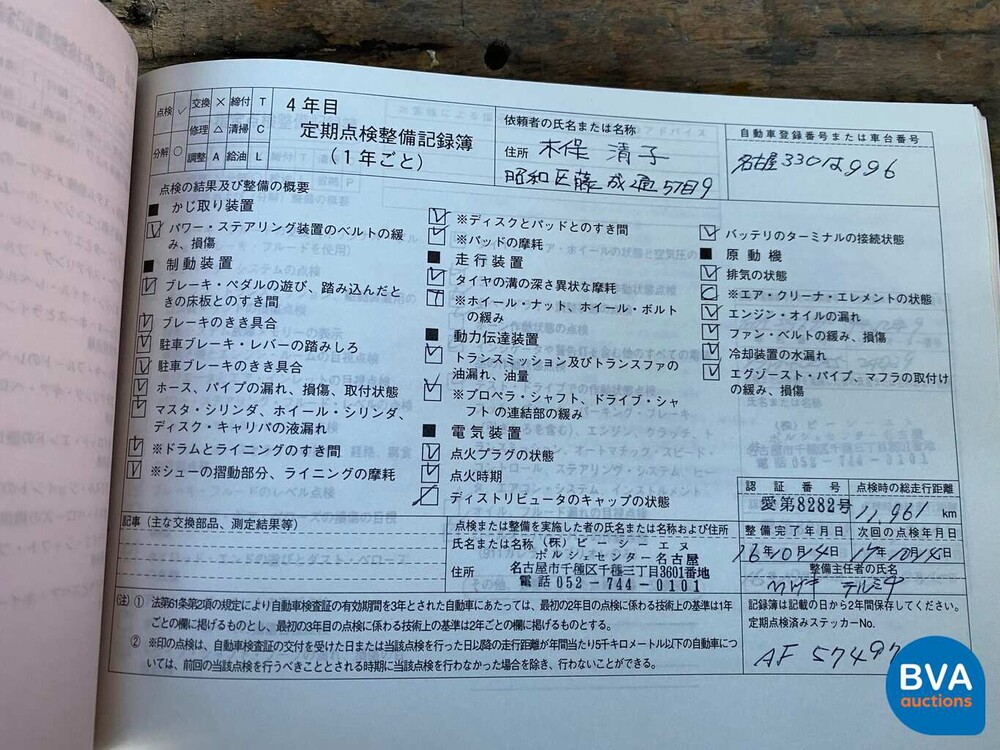 点検 ✓ 交換 × 締付 T
修理 △ 清掃 C
分解 ○ 調整 A 給油 L
4年目
定期点検整備記録簿
(1年ごと)
依頼者の氏名または名称
住所 木俣 清子
昭和区藤成通5丁目9
自動車登録番号または車台番号
名古屋330は996
点検の結果及び整備の概要
■ かじ取り装置
パワー・ステアリング装置のベルトの緩
み、損傷
■ 制動装置
ブレーキ・ペダルの遊び、踏み込んだと
きの床板とのすき間
ブレーキのきき具合
駐車ブレーキ・レバーの踏みしろ
駐車ブレーキのきき具合
ホース、パイプの漏れ、損傷、取付状態
マスタ・シリンダ、ホイール・シリンダ、
ディスク・キャリパの液漏れ
※ドラムとライニングのすき間
※シューの摺動部分、ライニングの摩耗
※ディスクとパッドとのすき間
※パッドの摩耗
■ 走行装置
タイヤの溝の深さ異状な摩耗
※ホイール・ナット、ホイール・ボルト
の緩み
■ 動力伝達装置
トランスミッション及びトランスファの
油漏れ、油量
※プロペラ・シャフト、ドライブ・シャ
フトの連結部の緩み
■ 電気装置
点火プラグの状態
点火時期
ディストリビュータのキャップの状態
バッテリのターミナルの接続状態
■ 原動機
排気の状態
※エア・クリーナ・エレメントの状態
エンジン・オイルの漏れ
ファン・ベルトの緩み、損傷
冷却装置の水漏れ
エグゾースト・パイプ、マフラの取付け
の緩み、損傷
認証番号
愛第8282号
点検時の総走行距離
11,961 km
整備完了年月日
16年10月14日
次回の点検年月日
17年10月14日
整備主任者の氏名
記事(主な交換部品、測定結果等)
点検または整備を実施した者の氏名または名称および住所
氏名または名称 (株)ピーシーエヌ
ポルシェセンター名古屋
住所 名古屋市千種区千種三丁目3601番地
電話 052-744-0101
記録簿は記載の日から2年間保存してください。
定期点検済みステッカーNo.
AF 57497
(注) ① 法第61条第2項の規定により自動車検査証の有効期間を3年とされた自動車にあたっては、最初の2年目の点検に係わる技術上の基準は1年
ごとの欄に掲げるものとし、最初の3年目の点検に係わる技術上の基準は2年ごとの欄に掲げるものとする。
② ※印の点検は、自動車検査証の交付を受けた日または当該点検を行った日以降の走行距離が年間当たり5千キロメートル以下の自動車につ
いては、前回の当該点検を行うべきこととされる時期に当該点検を行わなかった場合を除き、行わないことができる。
BVA
auctions